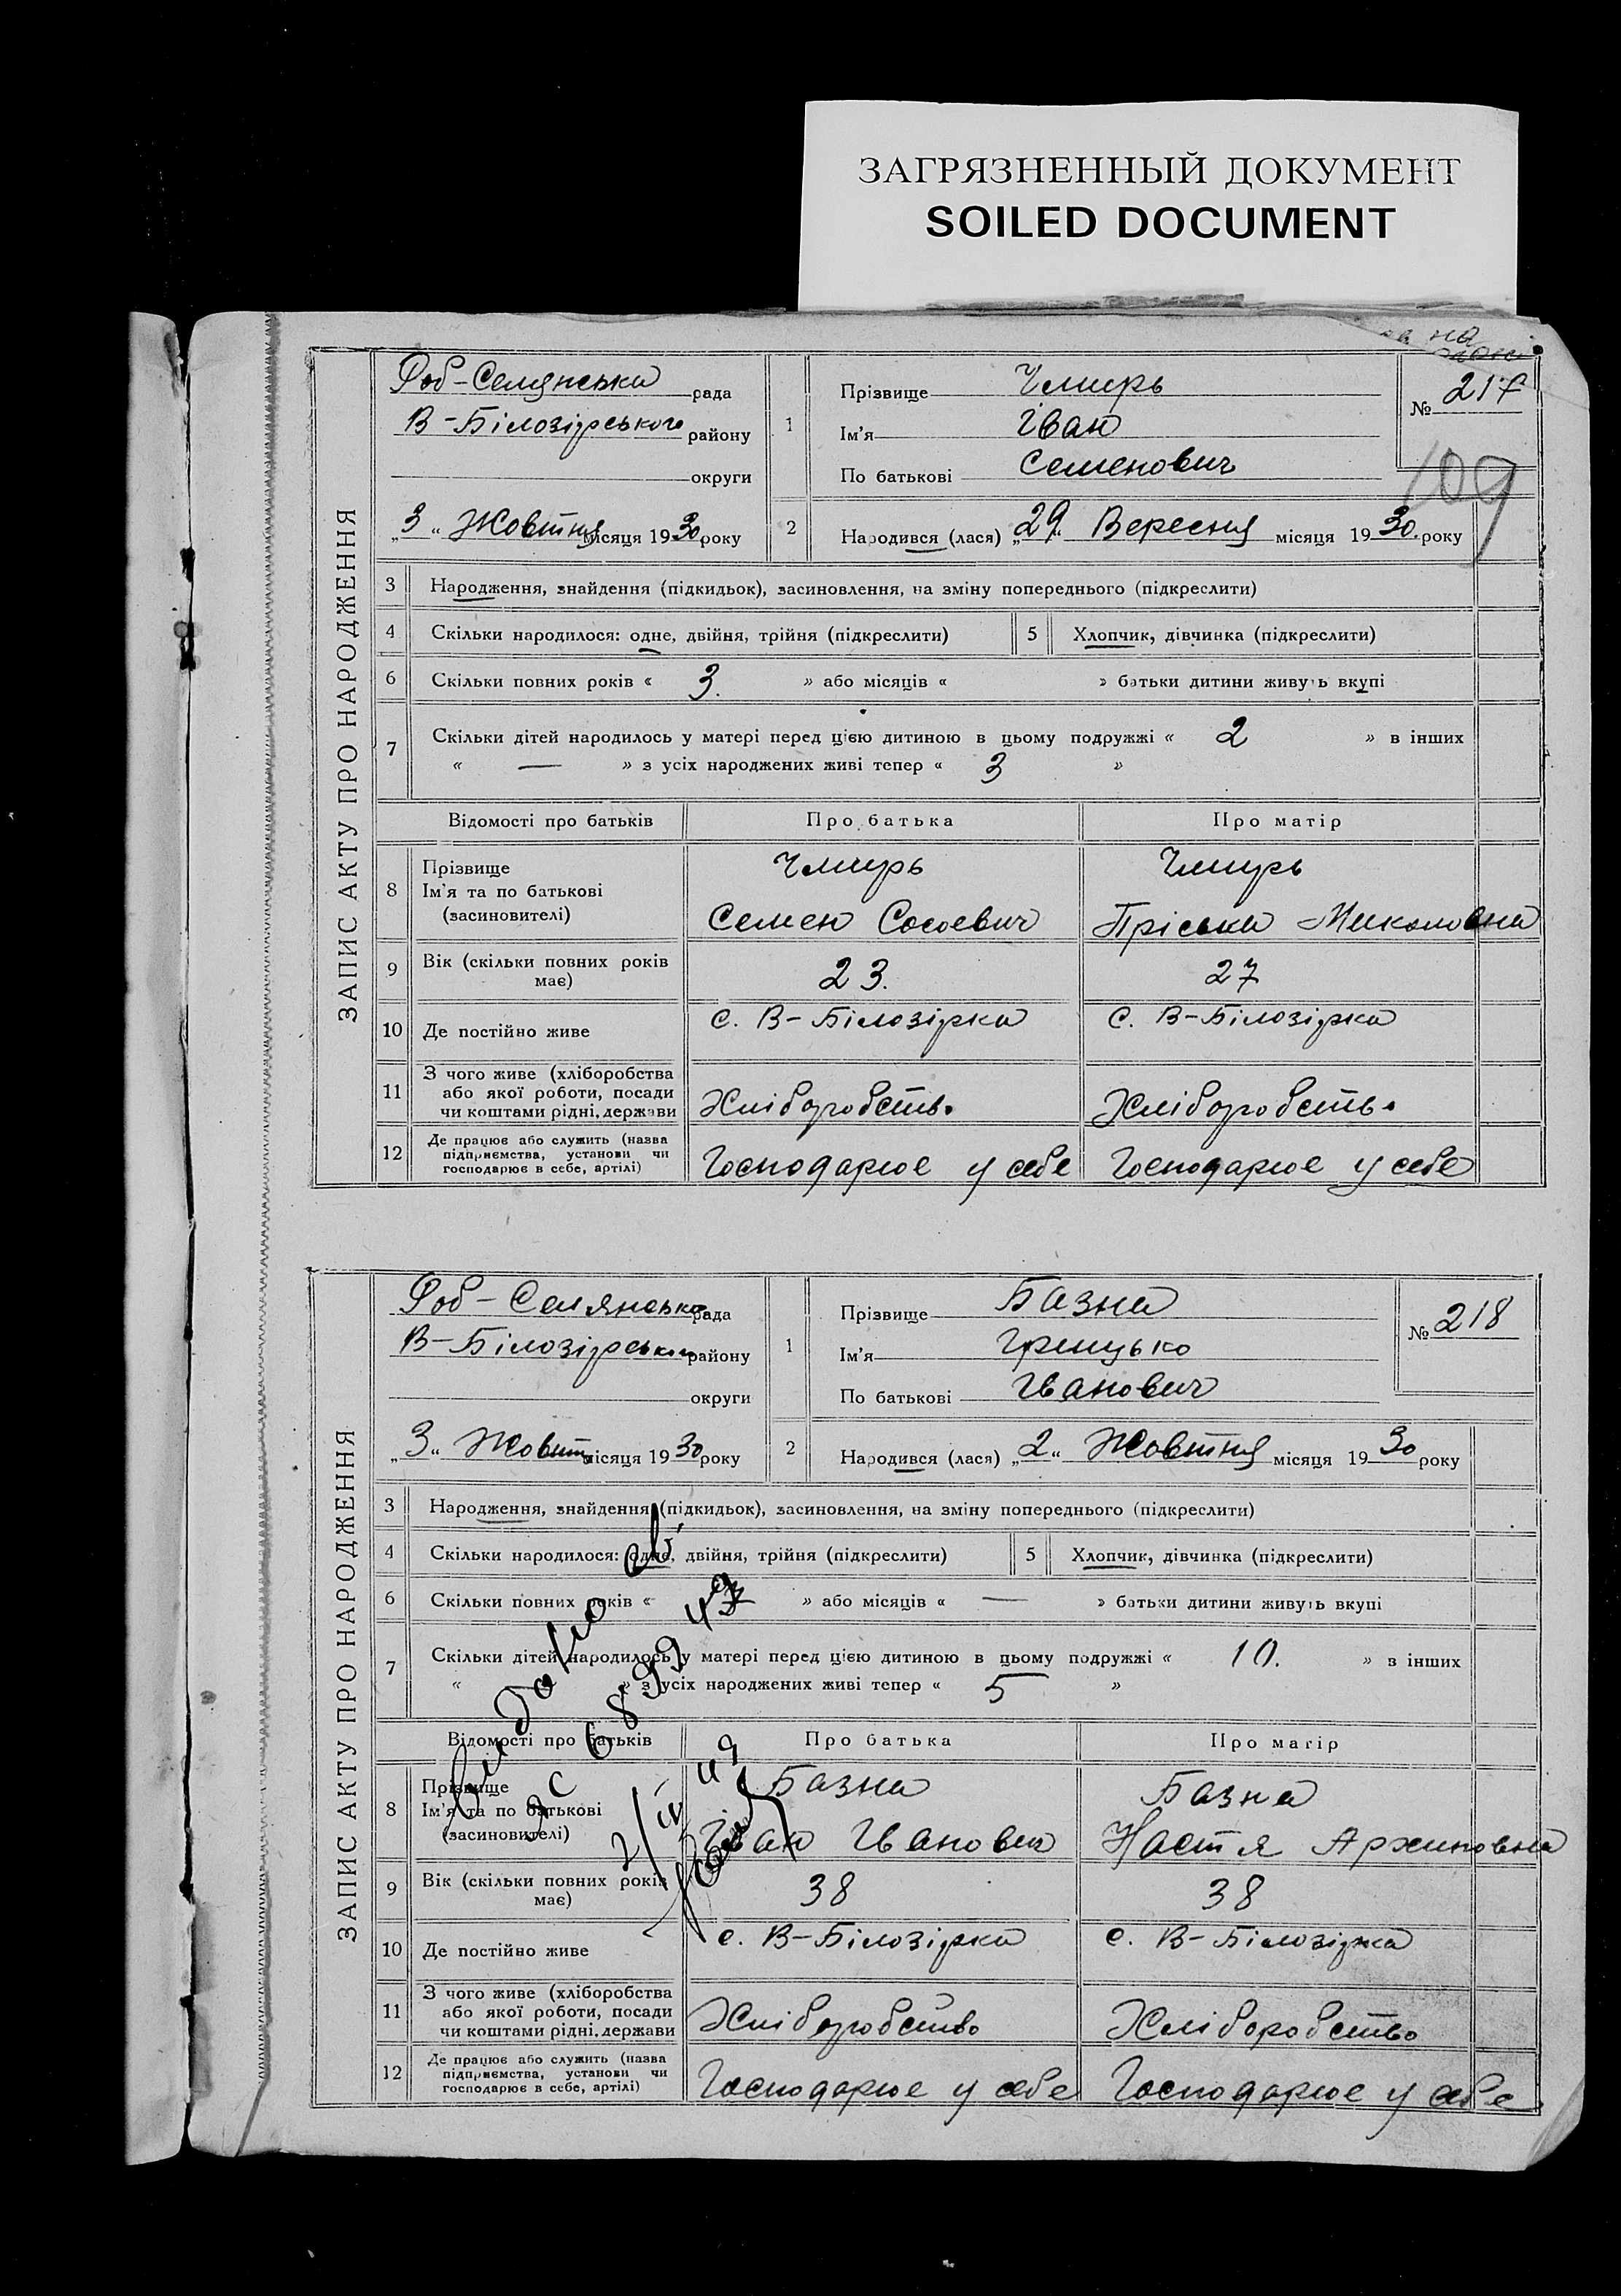 ЗАГРЯЗНЕННЫЙ ДОКУМЕНТ
SOILED DOCUMENT
на
ЗАПИС АКТУ ПРО НАРОДЖЕННЯ
Роб-Селянська рада
В-Білозірського району
округи
„3“ Жовтня місяця 1930 року
1
Прізвище Чмирь
Ім'я Іван
По батькові Семенович
№ 217
109
2
Народився (лася) „29“ Вересня місяця 1930. року
3 Народження, знайдення (підкидьок), засиновлення, на зміну попереднього (підкреслити)
4 Скільки народилося: одне, двійня, трійня (підкреслити) 5 Хлопчик, дівчинка (підкреслити)
6 Скільки повних років « 3. » або місяців « » батьки дитини живуть вкупі
7 Скільки дітей народилось у матері перед цією дитиною в цьому подружжі « 2 » в інших
« — » з усіх народжених живі тепер « 3 »
Відомості про батьків Про батька Про матір
8 Прізвище
Ім'я та по батькові
(засиновителі)
Чмирь
Семен
Чмирь
Пріська Миколовна
9 Вік (скільки повних років
має)
23. 27
10 Де постійно живе с. В-Білозірка с. В-Білозірка
11 З чого живе (хліборобства
або якої роботи, посади
чи коштами рідні, держави
Хліборобств. Хліборобств.
12 Де працює або служить (назва
підприємства, установи чи
господарює в себе, артілі)
Господарює у себе Господарює у себе
ЗАПИС АКТУ ПРО НАРОДЖЕННЯ
Роб-Селянська рада
В-Білозірського району
округи
„3“ Жовтн місяця 1930 року
1
Прізвище Базна
Ім'я Грицько
По батькові Іванович
№ 218
2
Народився (лася) „2“ Жовтня місяця 1930 року
3 Народження, знайдення (підкидьок), засиновлення, на зміну попереднього (підкреслити)
4 Скільки народилося: одне, двійня, трійня (підкреслити) 5 Хлопчик, дівчинка (підкреслити)
6 Скільки повних років « » або місяців « — » батьки дитини живуть вкупі
7 Скільки дітей народилось у матері перед цією дитиною в цьому подружжі « 10. » в інших
« » з усіх народжених живі тепер « 5 »
Відомості про батьків Про батька Про матір
8 Прізвище
Ім'я та по батькові
(засиновителі)
Базна
Іван Іванович
Базна
Настя Архиповна
9 Вік (скільки повних років
має)
38 38
10 Де постійно живе с. В-Білозірка с. В-Білозірка
11 З чого живе (хліборобства
або якої роботи, посади
чи коштами рідні, держави
Хліборобство Хліборобство
12 Де працює або служить (назва
підприємства, установи чи
господарює в себе, артілі)
Господарює у себе Господарює у себе